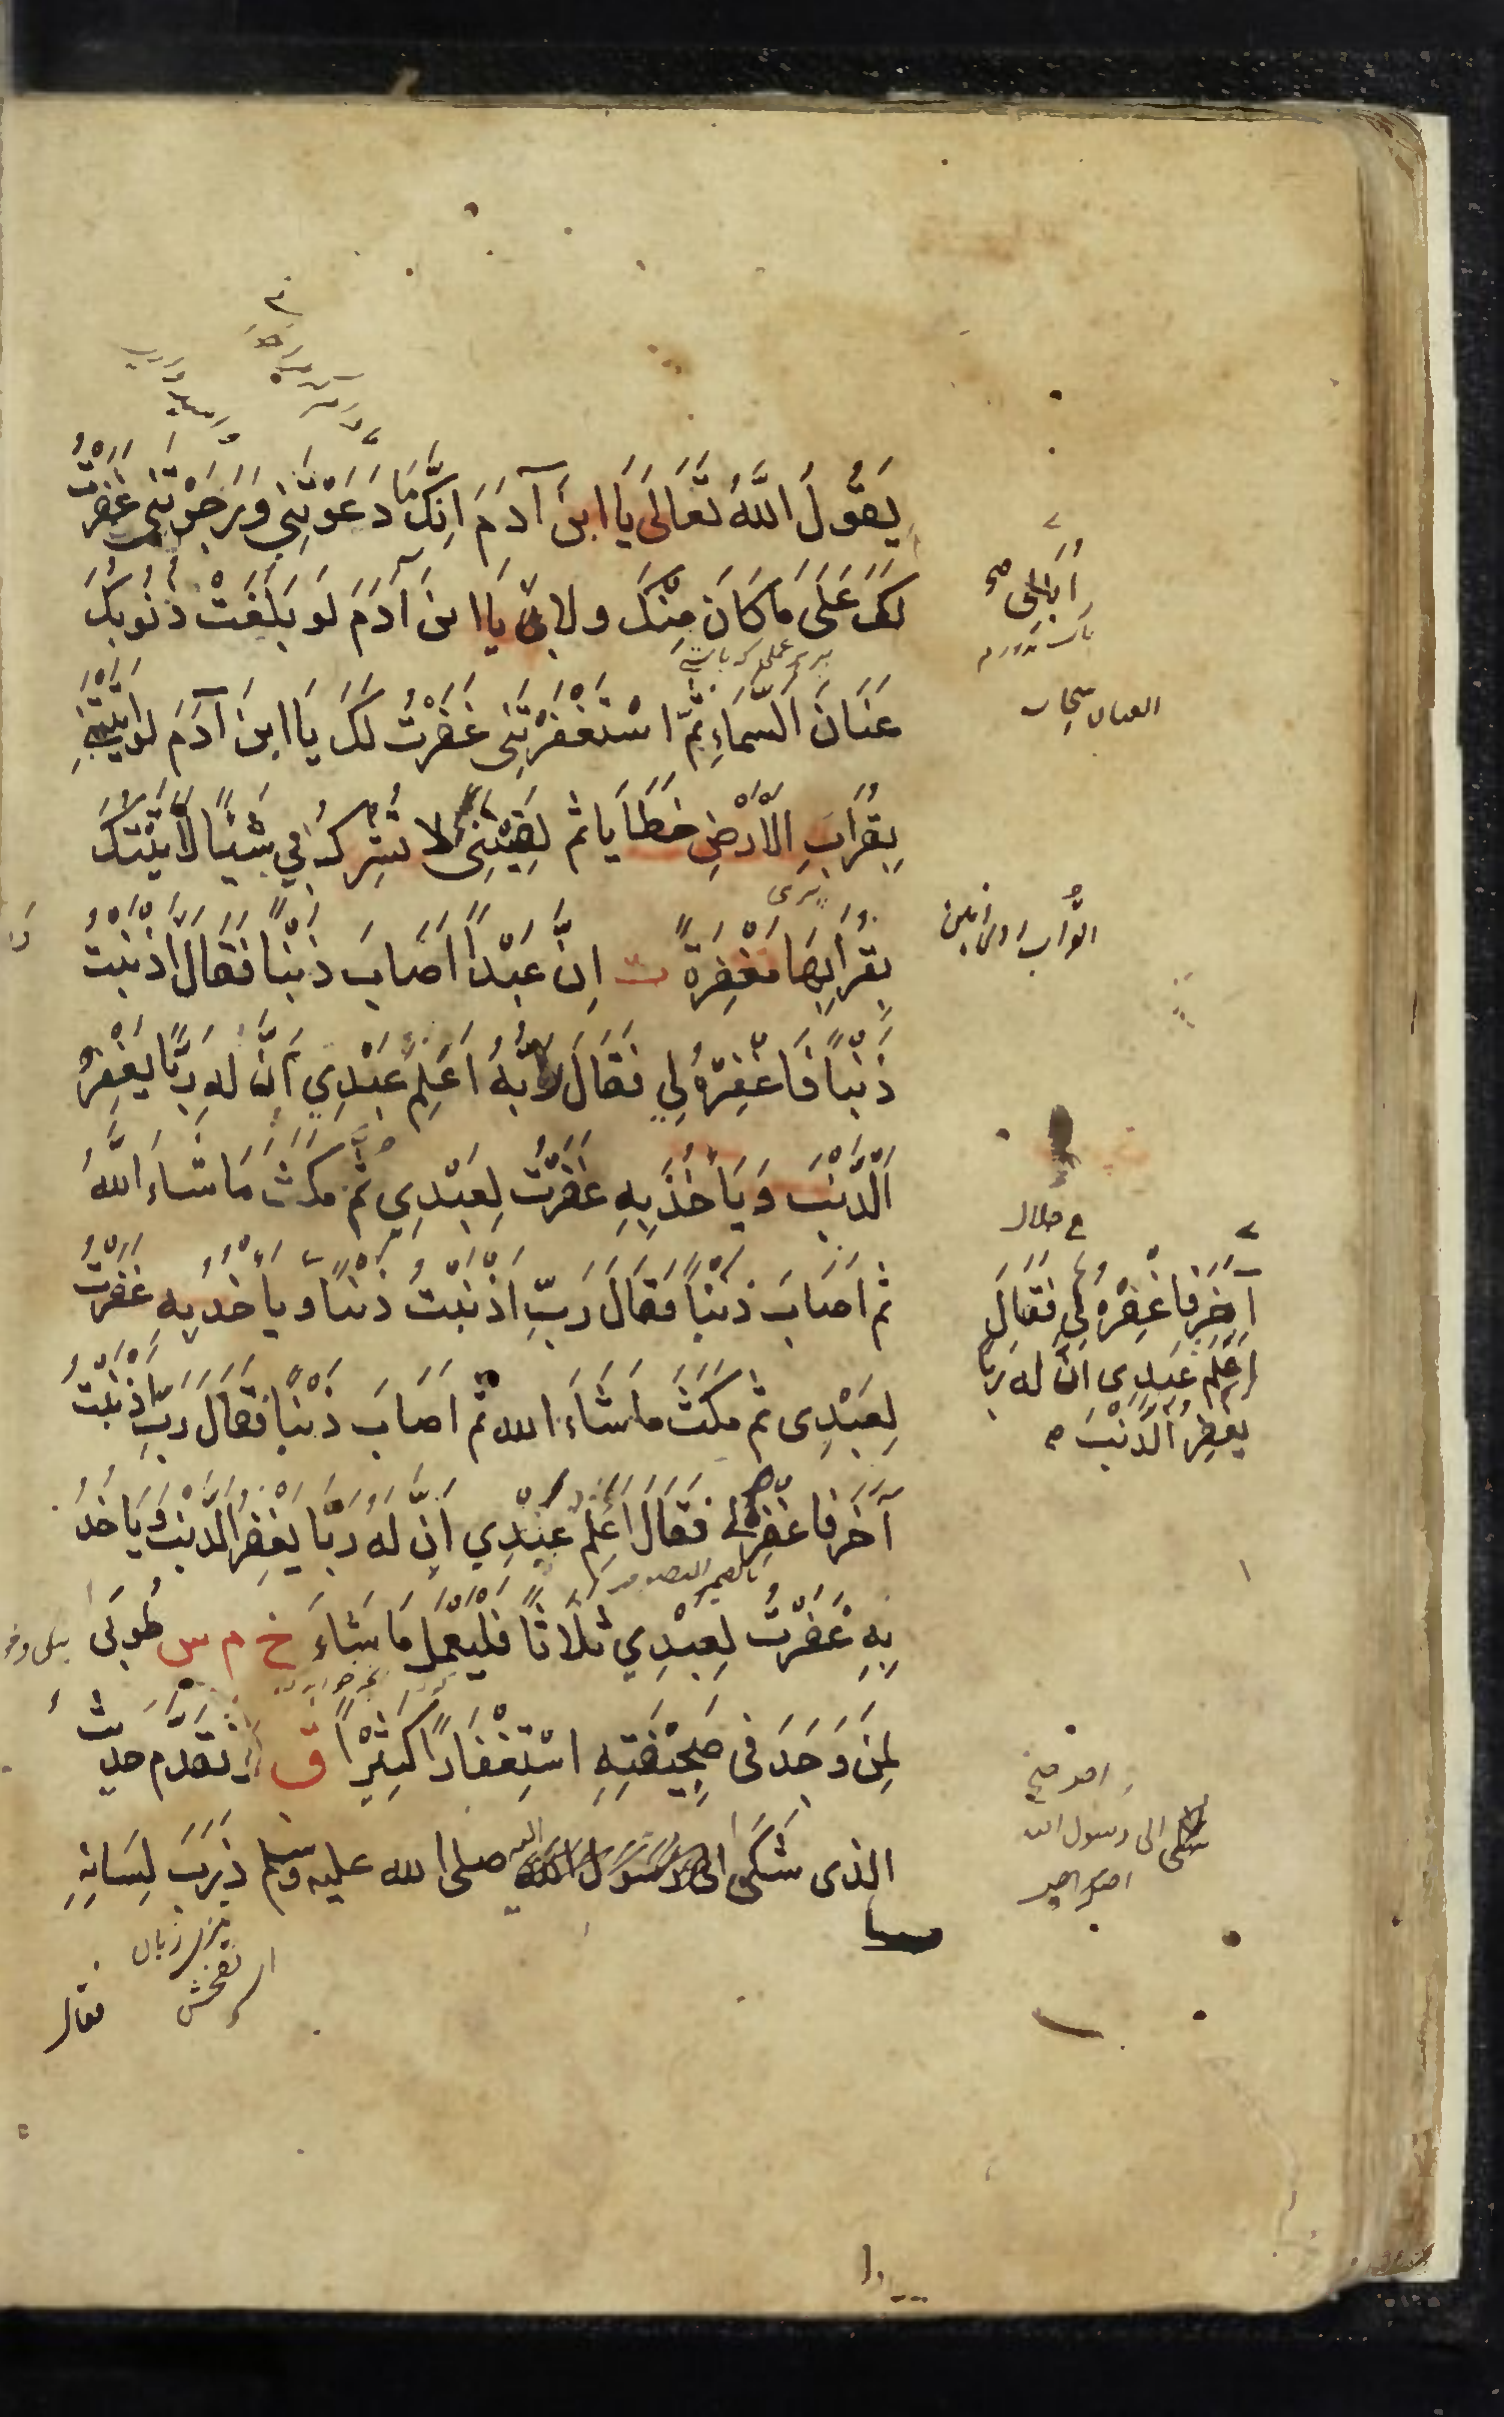 يَقُولُ اللَّهُ تَعَالَى يَا ابنَ آدَمَ اِنَّكَ مَا دَعَوْتَنِي وَرَجَوْتَنِي غَفَرْتُ
لَكَ عَلَى مَا كَانَ مِنْكَ ولا يَا ابنَ آدَمَ لَو بَلَغَتْ ذُنُوبُكَ
عَنَانَ السَّمَاءِ ثمَّ اسْتَغْفَرْتَنِى غَفَرْتُ لَكَ يَا ابنَ آدَمَ لو اَتَيْتَنِي
بِقُرَابِ الْاَرْضِ خَطَايَا ثم لَقِيْتَنِى لا تُشْرِكُ بِي شَيْئًا لَاَتَيْتُكَ
بِقُرَابِهَا مَغْفِرَةً ت اِنَّ عَبْدًا اَصَابَ ذَنْبًا فَقَالَ اَذْنَبْتُ
ذَنْبًا فَاغْفِرْهُ لِي فَقَالَ رَبُّهُ اَعَلِمَ عَبْدِي اَنَّ لَهُ رَبًّا يَغْفِرُ
الذَّنْبَ وَيَأْخُذُ بِهِ غَفَرْتُ لِعَبْدِي ثُمَّ مَكَثَ مَا شَاءَ اللَّهُ
ثم اَصَابَ ذَنْبًا فَقَالَ رَبِّ اَذْنَبْتُ ذَنْبًا وَيَأْخُذُ بِهِ غَفَرْتُ
لِعَبْدِى ثم مَكَثَ مَا شَاءَ الله ثم اَصَابَ ذَنْبًا فَقَالَ رَبِّ اَذْنَبْتُ
آخَرَ فاغْفِرْهُ لى فَقَالَ اَعَلِمَ عَبْدِي اَنَّ لَهُ رَبًّا يَغْفِرُ الذَّنْبَ وَيَاخُذُ
بِهِ غَفَرْتُ لِعَبْدِي ثَلَاثًا فَلْيَعْمَلْ مَا شَاءَ خ م س طُوبَى
لِمَنْ وَجَدَ فى صَحِيْفَتِهِ اسْتِغْفَارًا كَثِيْرًا ق وتَقَدَّمَ حديث
الذى شَكَى الى رسول الله صلى الله عليه وسلم ذَرَبَ لِسَانِهِ
فقال
اُبَالِى صح
العنان سحاب
آخَرَ فَاغْفِرْهُ لِي فَقَالَ
اَعَلِمَ عَبْدِى اَنَّ لَهُ رَبًّا
يَغْفِرُ الذَّنْبَ
الى رسول الله